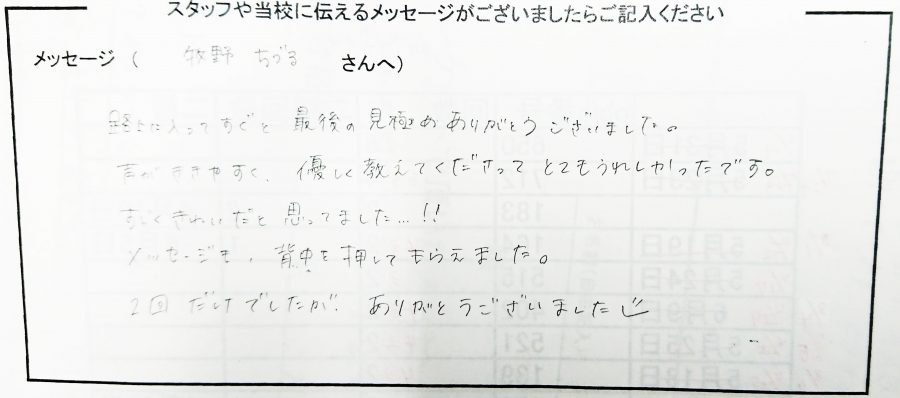 スタッフや当校に伝えるメッセージがございましたらご記入ください
メッセージ ( 牧野 ちづる さんへ)
路上に入ってすぐと 最後の見極めありがとうございました。
声がききやすく、優しく教えてくださって とてもうれしかったです。
すごくきれいだと思ってました…!!
メッセージも、背中を押してもらえました。
2回だけでしたが、ありがとうございました